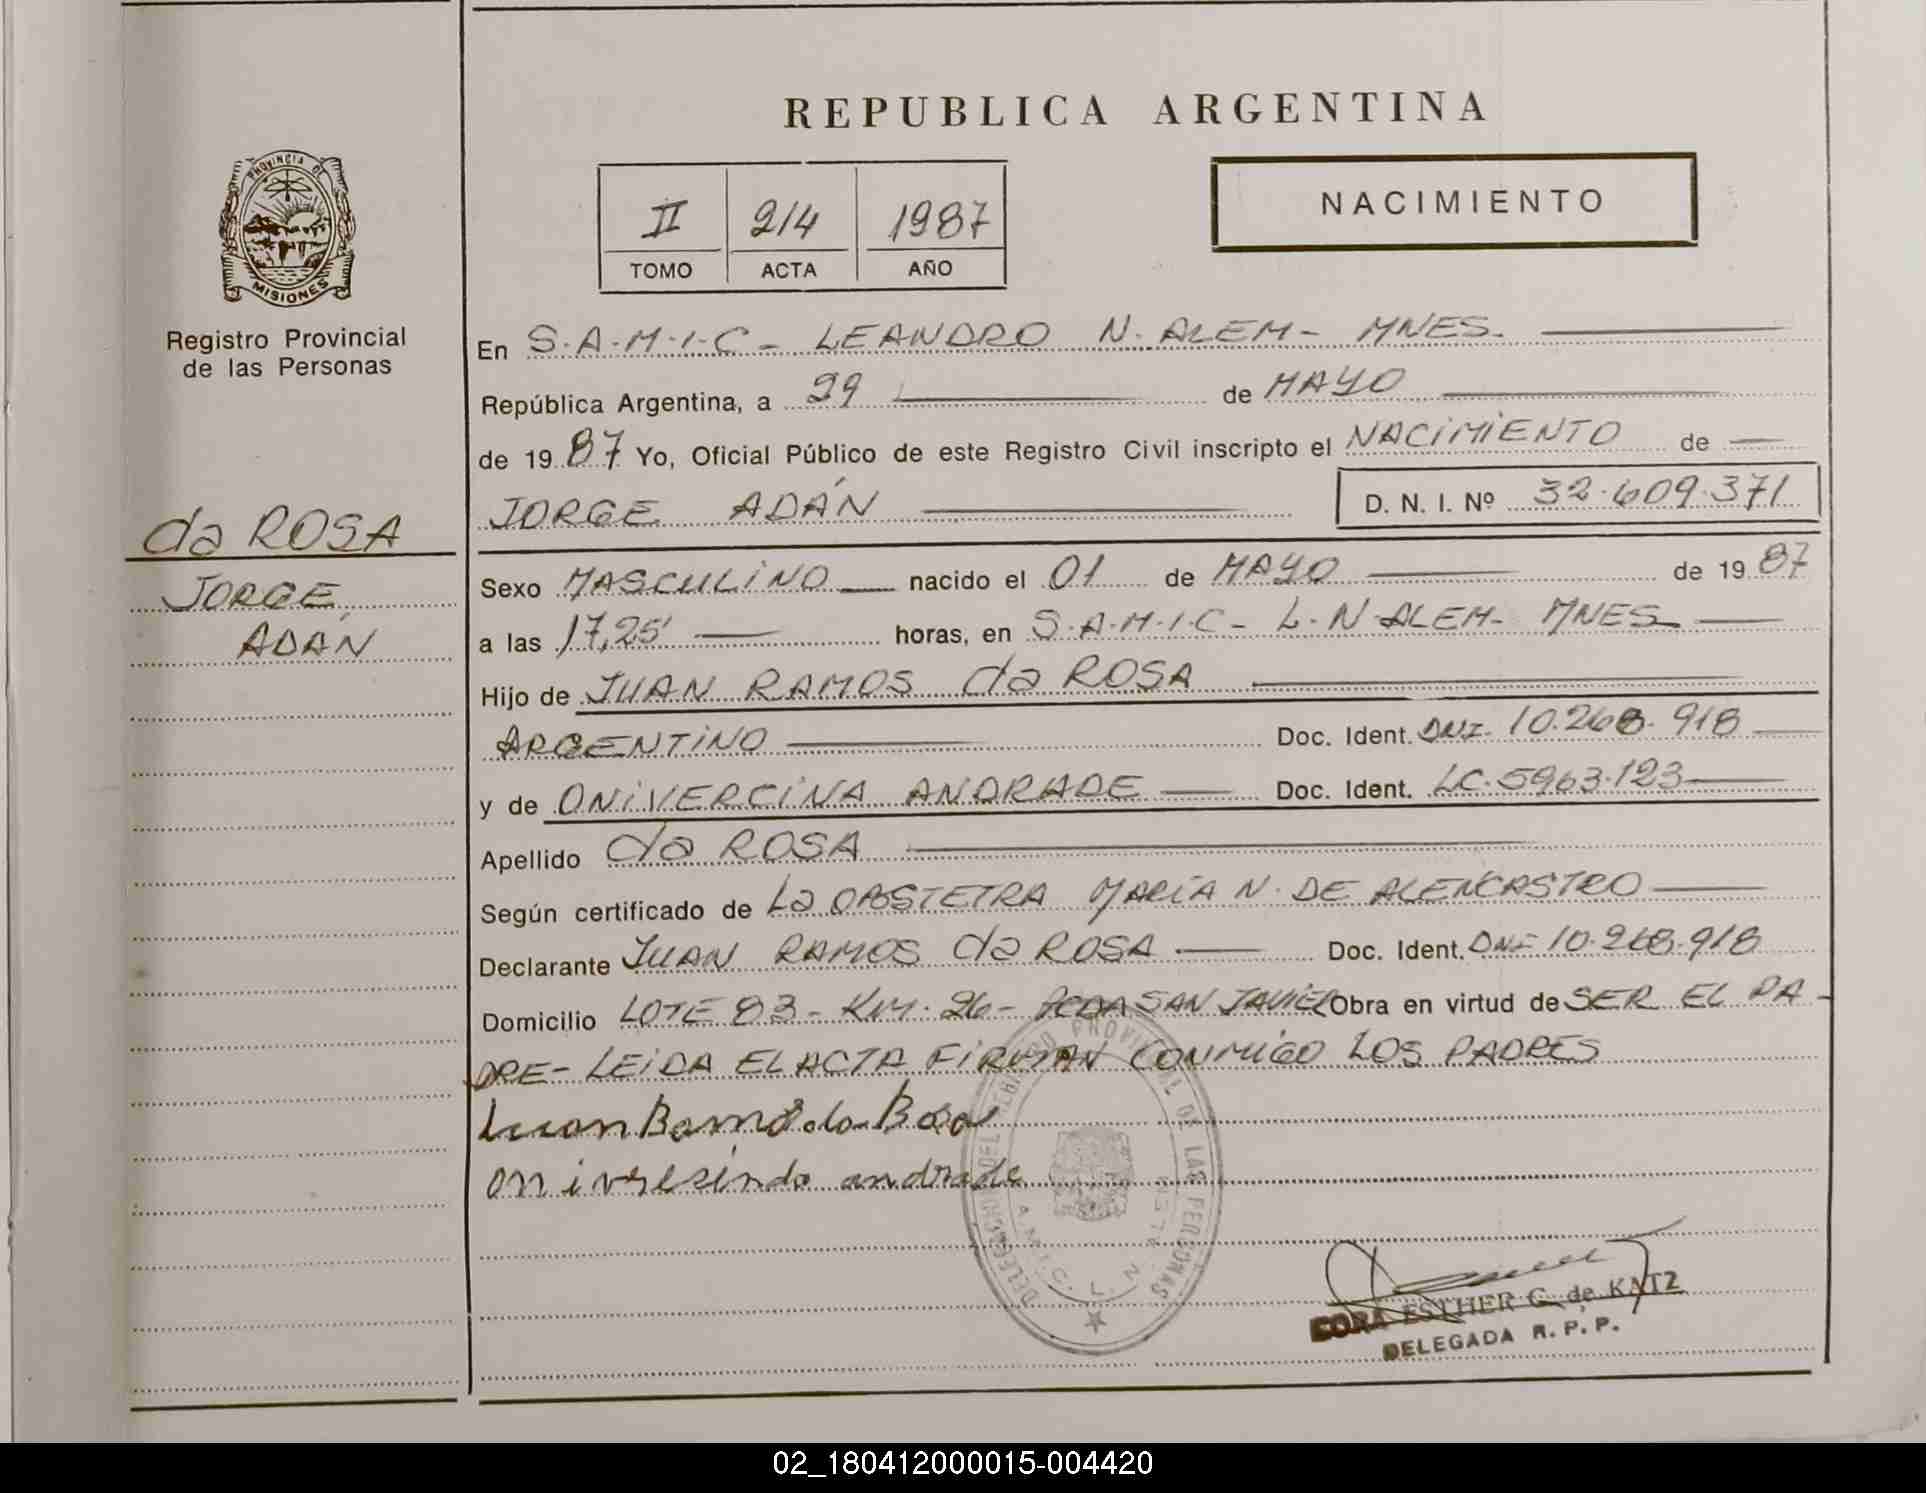 REPUBLICA ARGENTINA
II 214 1987
TOMO ACTA AÑO
NACIMIENTO
PROVINCIA DE
MISIONES
Registro Provincial
de las Personas
da ROSA
JORGE
ADÁN
En S.A.M.I.C - LEANDRO N. ALEM - MNES.
República Argentina, a 29 de MAYO
de 1987 Yo, Oficial Público de este Registro Civil inscripto el NACIMIENTO de
JORGE ADÁN D. N. I. Nº 32.609.371
Sexo MASCULINO nacido el 01 de MAYO de 1987
a las 17,25' horas, en S.A.M.I.C - L.N. ALEM - MNES
Hijo de JUAN RAMOS da ROSA
ARGENTINO Doc. Ident. DNI. 10.268.918
y de ONIVERCINA ANDRADE Doc. Ident. LC. 5963.123
Apellido da ROSA
Según certificado de La OBSTETRA MARÍA N. DE ALENCASTRO
Declarante JUAN RAMOS da ROSA Doc. Ident. DNI 10.268.918
Domicilio LOTE 83 - KM. 26 - PCDA SAN JAVIER Obra en virtud de SER EL PA-
DRE - LEIDA EL ACTA FIRMAN CONMIGO LOS PADRES
Juan Ramos da Rosa
oniversinda andrade
DELEGACION DEL REGISTRO PROVINCIAL DE LAS PERSONAS
S.A.M.I.C. L. N. ALEM
ESTHER G. de KATZ
DELEGADA R. P. P.
02_180412000015-004420